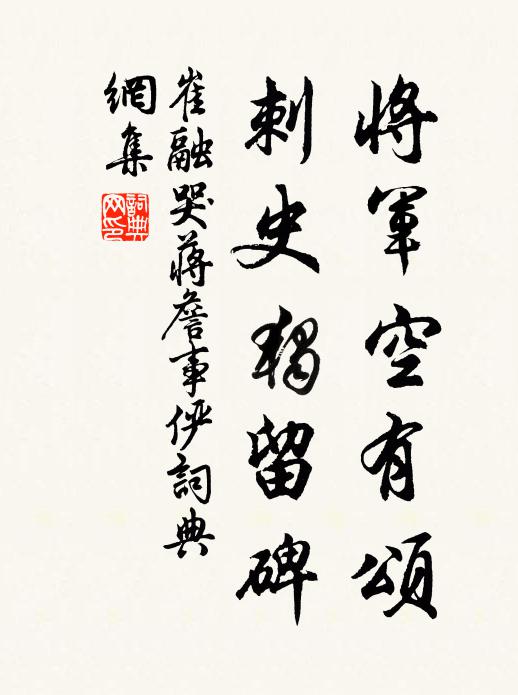 將軍空有頌
刺史獨留碑
崔融哭蔣詹事俨詞典
網集
詞典
网印